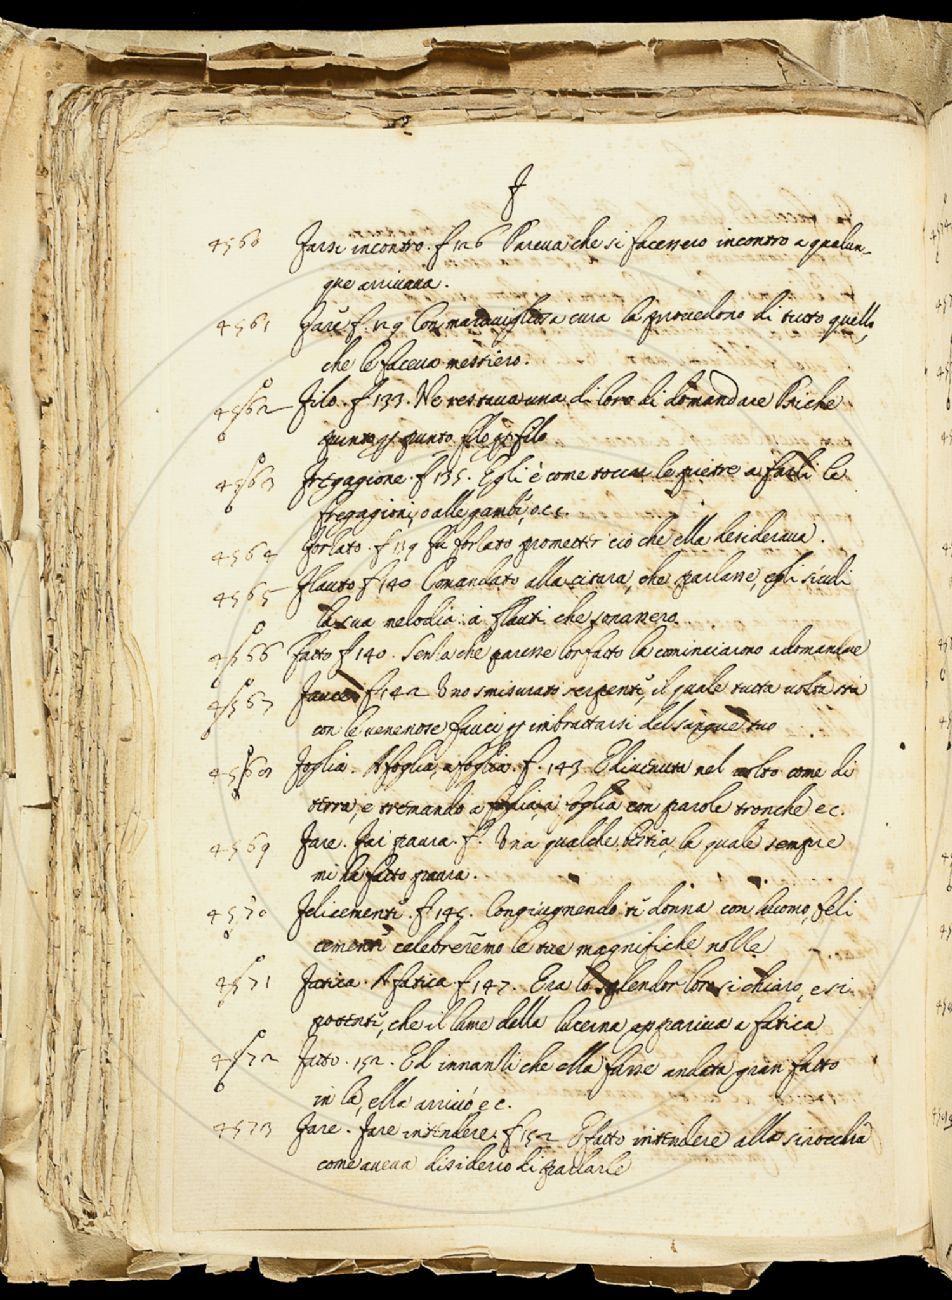 F
4560 Farsi incontro. f 126 Pareva che si facessero incontro a qualun-
que arrivava.
4561 Fare f. 129 Con maravigliosa cura la provedono di tutto quello,
che le faceva mestiero.
4562 Filo. f 133. Ne restava una di loro di domandare Psiche
punto p punto filo p filo
4563 Fregagione. f 135. Egli è come le pietre a farli le
fregagioni, o alle gambe, o ec.
4564 Forzato. f 139 Fu forzato prometter ciò che ella desiderava.
4565 Flauto f 140 Comandato alla citara, che parlasse,
la sua melodia: a flauti che sonassero.
4566 Fatto f 140. Senza che paresse lor fatto la cominciarno a domandare
4567 Fauce f 142 Uno smisurato serpente, il quale tutta volta sta
con le venenose fauci p imbrattarsi del sangue tuo
4568 Foglia. A foglia, a foglia. f. 143. E divenuta nel volto come di
terra, e tremando a foglia, a foglia con parole tronche ec.
4569 Fare. Far paura. f. Una qualche bestia, la quale sempre
mi ha fatto paura.
4570 Felicemente f 145. Congiugnendo te donna con uomo, feli
cemente celebreremo le tue magnifiche nozze
4571 Fatica. A fatica f 147. Era lo splendor loro si chiaro, e si
potente, che il lume della lucerna appariva a fatica
4572 Fatto. 152. Ed innanzi che ella fusse andata gran fatto
in là, ella arrivò ec.
4573 Fare. Fare intendere. f 152 E fatto intendere alla sirocchia
come aveva disiderio di parlarle